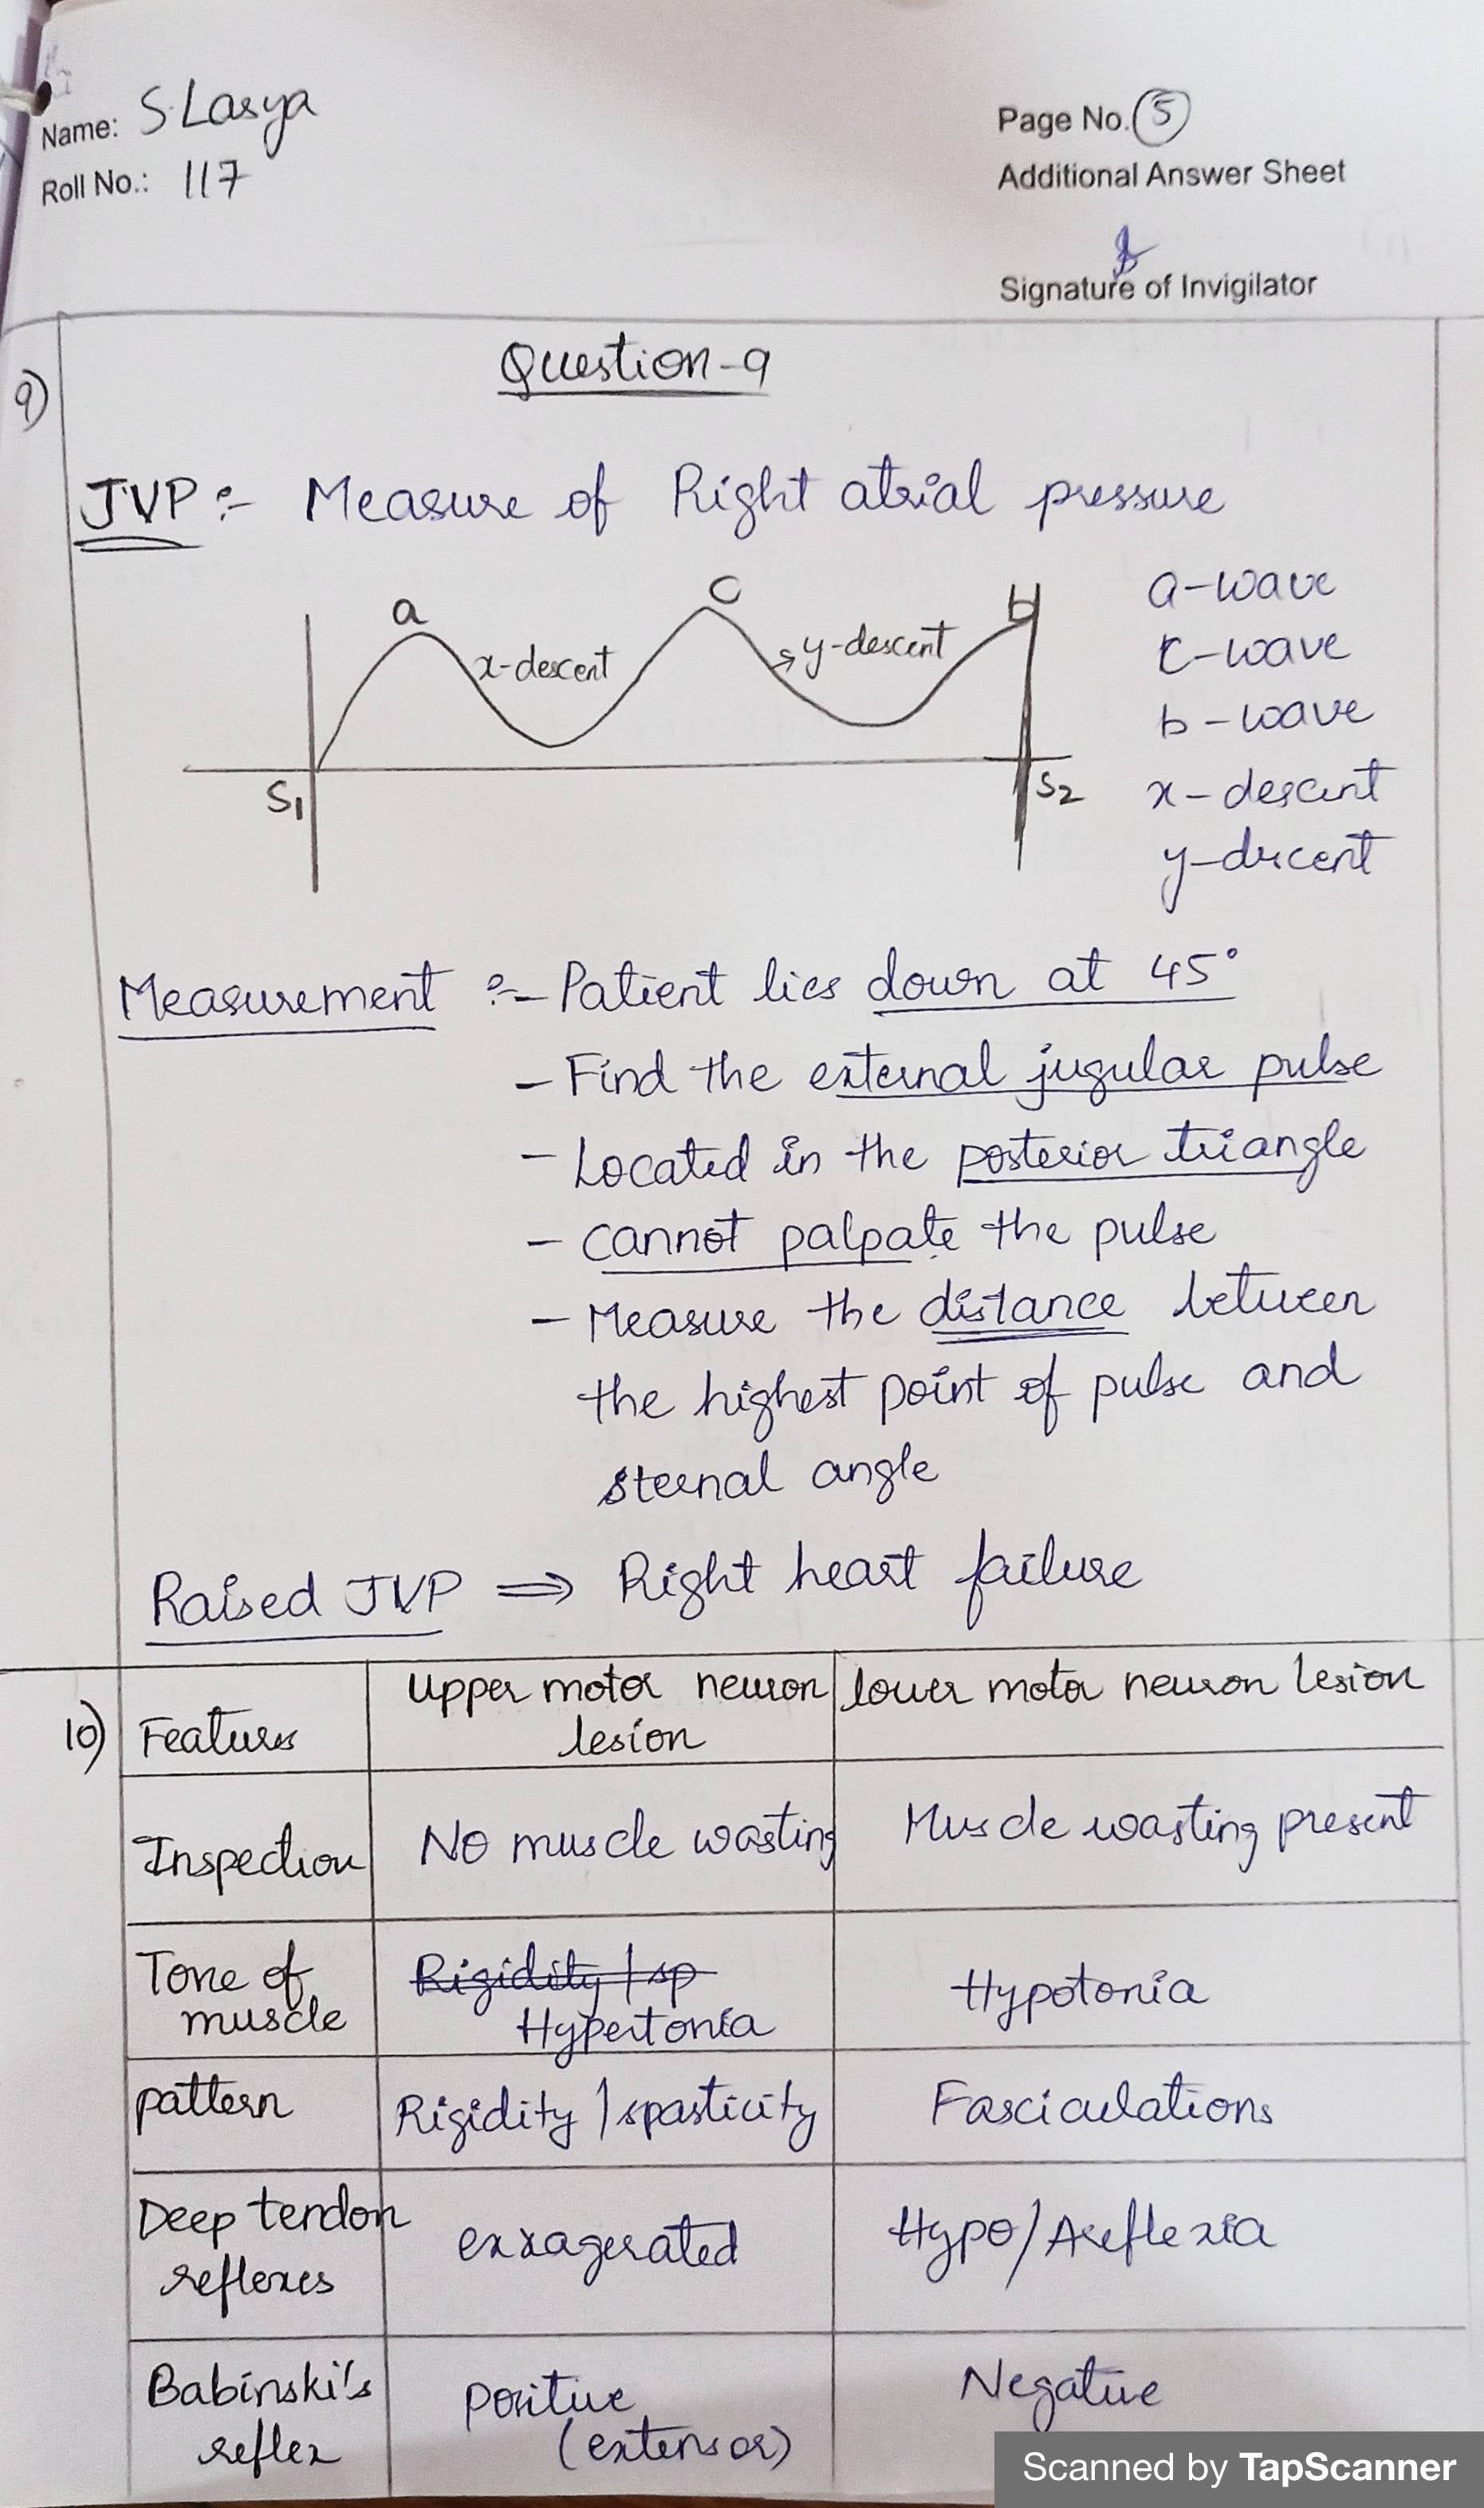 Name: S.Lasya
Roll No.: 117
Page No. 5
Additional Answer Sheet
Signature of Invigilator
9)
Question-9
JVP :- Measure of Right atrial pressure
a
c
b
x-descent
→ y-descent
S1
S2
a-wave
c-wave
b-wave
x-descent
y-descent
Measurement :- Patient lies down at 45°
- Find the external jugular pulse
- Located in the posterior triangle
- cannot palpate the pulse
- Measure the distance between
the highest point of pulse and
sternal angle
Raised JVP ⇒ Right heart failure
10)
Features
Upper motor neuron
lesion
lower motor neuron lesion
Inspection
No muscle wasting
Muscle wasting present
Tone of
muscle
Rigidity / sp
Hypertonia
Hypotonia
pattern
Rigidity / spasticity
Fasciculations
Deep tendon
reflexes
exxagerated
Hypo/Areflexia
Babinski's
reflex
Positive
(extensor)
Negative
Scanned by TapScanner